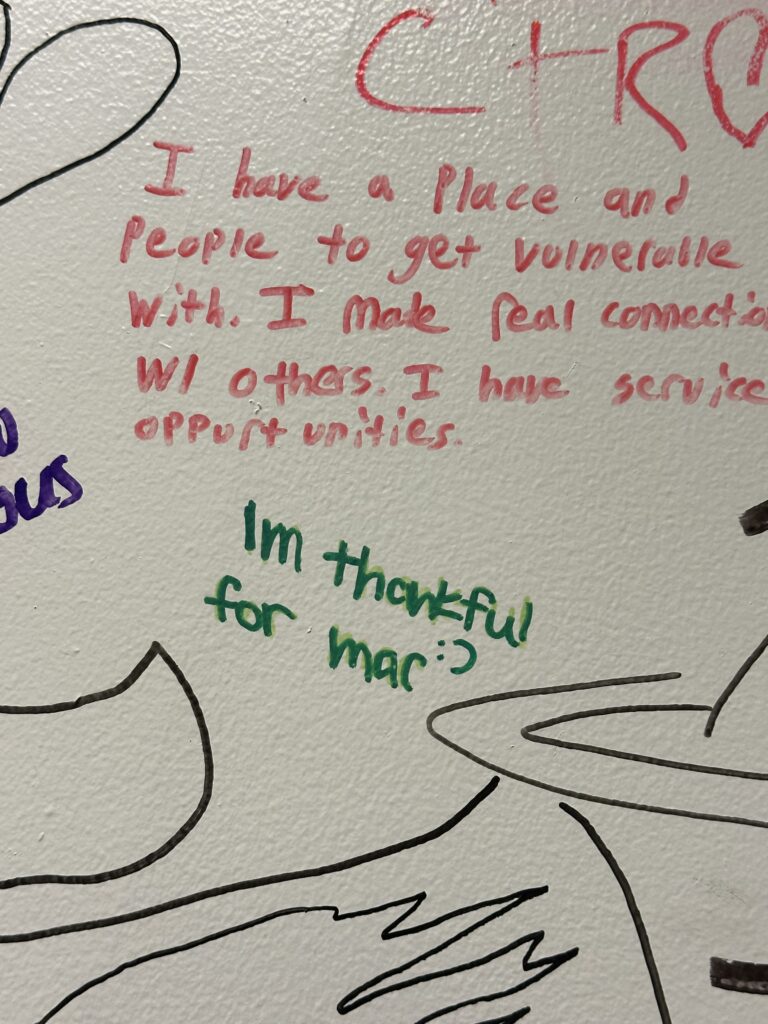 C+R
I have a Place and
People to get vulnerable
with. I make real connectio
w/ others. I have service
oppurtunities.
ous
Im thankful
for mac :)